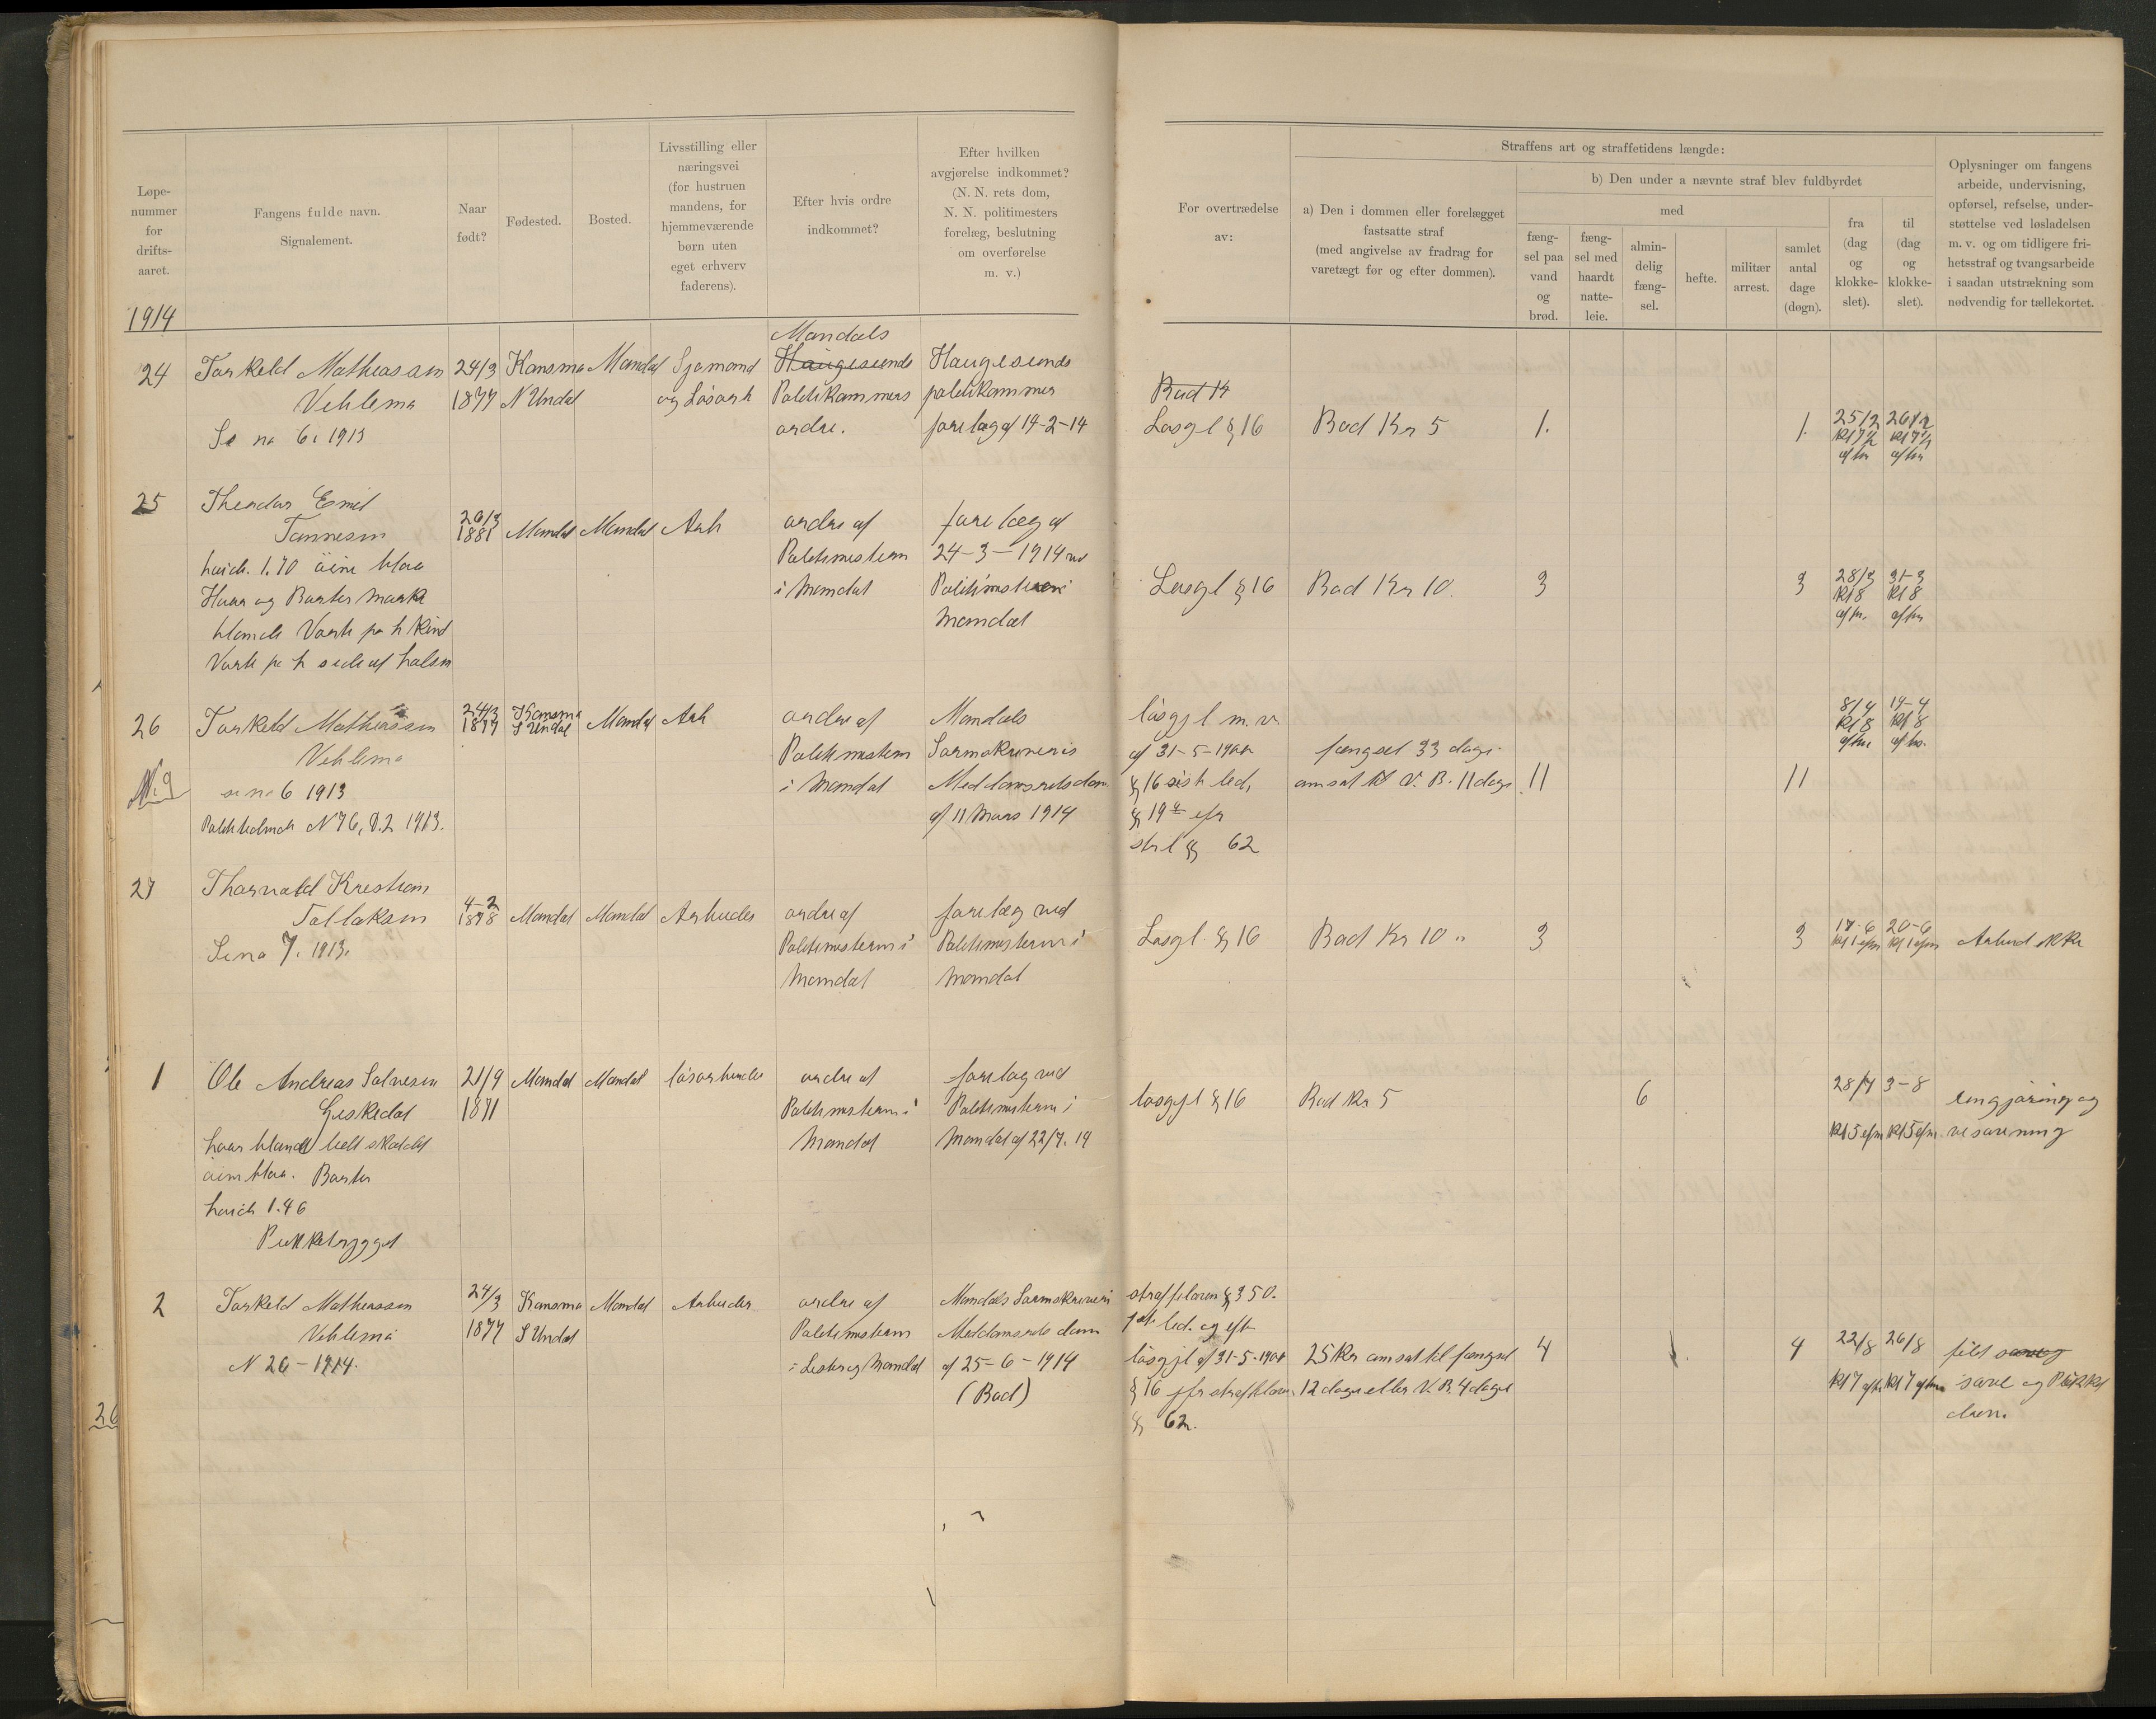 Løpe-
nummer
for
drifts-
aaret.
Fangens fulde navn.
Signalement.
Naar
født?
Fødested.
Bosted.
Livsstilling eller
næringsvei
(for hustruen
mandens, for
hjemmeværende
børn uten
eget erhverv
faderens).
Efter hvis ordre
indkommet?
Efter hvilken
avgjørelse indkommet?
(N. N. rets dom,
N. N. politimesters
forelæg, beslutning
om overførelse
m. v.)
For overtrædelse
av:
Straffens art og straffetidens længde:
a) Den i dommen eller forelægget
fastsatte straf
(med angivelse av fradrag for
varetægt før og efter dommen).
b) Den under a nævnte straf blev fuldbyrdet
med
fæng-
sel paa
vand
og
brød.
fæng-
sel med
haardt
natte-
leie.
almin-
delig
fæng-
sel.
hefte.
militær
arrest.
samlet
antal
dage
(døgn).
fra
(dag
og
klokke-
slet).
til
(dag
og
klokke-
slet).
Oplysninger om fangens
arbeide, undervisning,
opførsel, refselse, under-
støttelse ved løsladelsen
m. v. og om tidligere fri-
hetsstraf og tvangsarbeide
i saadan utstrækning som
nødvendig for tællekortet.
1914
24
Torkeld Mathiassen
Vehlema
Se no 6 i 1913
24/3
1877
Kansma
N Undal
Mandal
Sjømand
og Løsarb
Mandals
Haugesunds
Politikammers
ordre.
Haugesunds
politikammer
forelæg af 14-2-14
Bad 14
Løsgl § 16
Bod Kr 5
1.
1.
25/2
Kl 7 1/2
af fm
26/2
Kl 7 1/2
af fm
25
Theodor Emil
Tønnesen
høide 1.70 øine blaa
Haar og Barter mørk
blonde Vorte pa h Kind
Vorte pa h side af halsen
26/3
1881
Mandal
Mandal
Arb
ordre af
Politimesteren
i Mandal
forelæg af
24-3-1914 ved
Politimesteren i
Mandal
Løsgl § 16
Bod Kr 10.
3
3
28/3
Kl 8
af fm.
31-3
Kl 8
af fm
26
N. 9
Torkeld Mathiassen
Vehlema
se no 6 1913
Politikalende N 76, D.2 1913.
24/3
1877
Kansma
S Undal
Mandal
Arb
ordre af
Politimesteren
i Mandal
Mandals
Sorenskriveris
Meddomsretsdom
af 11 Mars 1914
løsgjl m. v.
af 31-5-1900
§ 16 sist led,
§ 19 efr
strl § 62
fængsel 33 dage
omsat til V. B. 11 dage
11
11
8/4
Kl 8
af fm
19-4
Kl 8
af fm.
27
Thorvald Kristian
Tallaksen
Se no 7. 1913.
4-2
1878
Mandal
Mandal
Arbeider
ordre af
Politimesteren i
Mandal
forelæg ved
Politimesteren i
Mandal
Løsgl. § 16
Bod Kr 10 "
3
3
17-6
Kl 1 efm
20-6
Kl 1 efm
Arbeid ikke
1
Ole Andreas Salvesen
Giskedal
haar blondt helt skaldet
øine blaa. Barter
høide 1.46
Pukkelrygget
21/9
1871
Mandal
Mandal
løsarbeider
ordre af
Politimesteren i
Mandal
forelæg ved
Politimesteren i
Mandal af 22/7. 14
løsgjl § 16
Bod Kr 5
6
28/7
Kl 5 efm
3-8
Kl 5 efm.
rengjøring og
vesavening
2
Torkeld Mathiassen
Vehlema
N 26-1914.
24/3
1877
Kansma
S Undal
Mandal
Arbeider
ordre af
Politimesteren
i Lister og Mandal
Mandals Sorenskriveri
Meddomsrets dom
af 25-6-1914
(Bod)
straffeloven § 350.
1st led. og eft
løsgjl af 31-5-1900
§ 16 jfr straffeloven
§ 62.
25 Kr omsat til fængsel
12 dage eller V. B. 4 dage
4
4
22/8
Kl 7 af fm
26/8
Kl 7 af fm
filt
save og Pukket
26